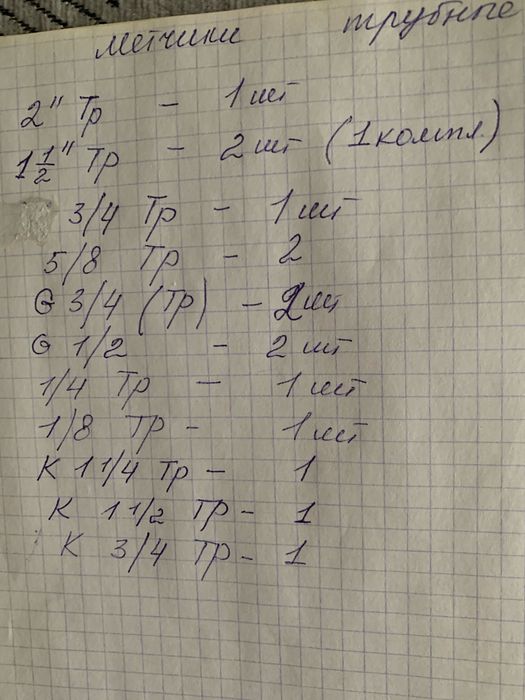 метчики трубные
2" Тр - 1 шт
1 1/2" Тр - 2 шт (1 компл.)
3/4 Тр - 1 шт
5/8 Тр - 2
G 3/4 (Тр) - 2 шт
G 1/2 - 2 шт
1/4 Тр - 1 шт
1/8 Тр - 1 шт
К 1 1/4 Тр - 1
К 1 1/2 Тр - 1
К 3/4 Тр - 1